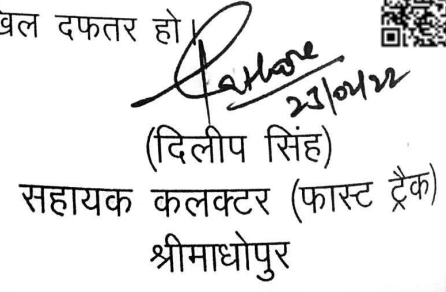 खिल दफतर हो।
Rathore
23/02/22
(दिलीप सिंह)
सहायक कलक्टर (फास्ट ट्रैक)
श्रीमाधोपुर